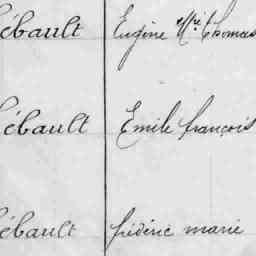 ébault Eugène Mie Thomas
ébault Emile françois
ébault frédéric marie